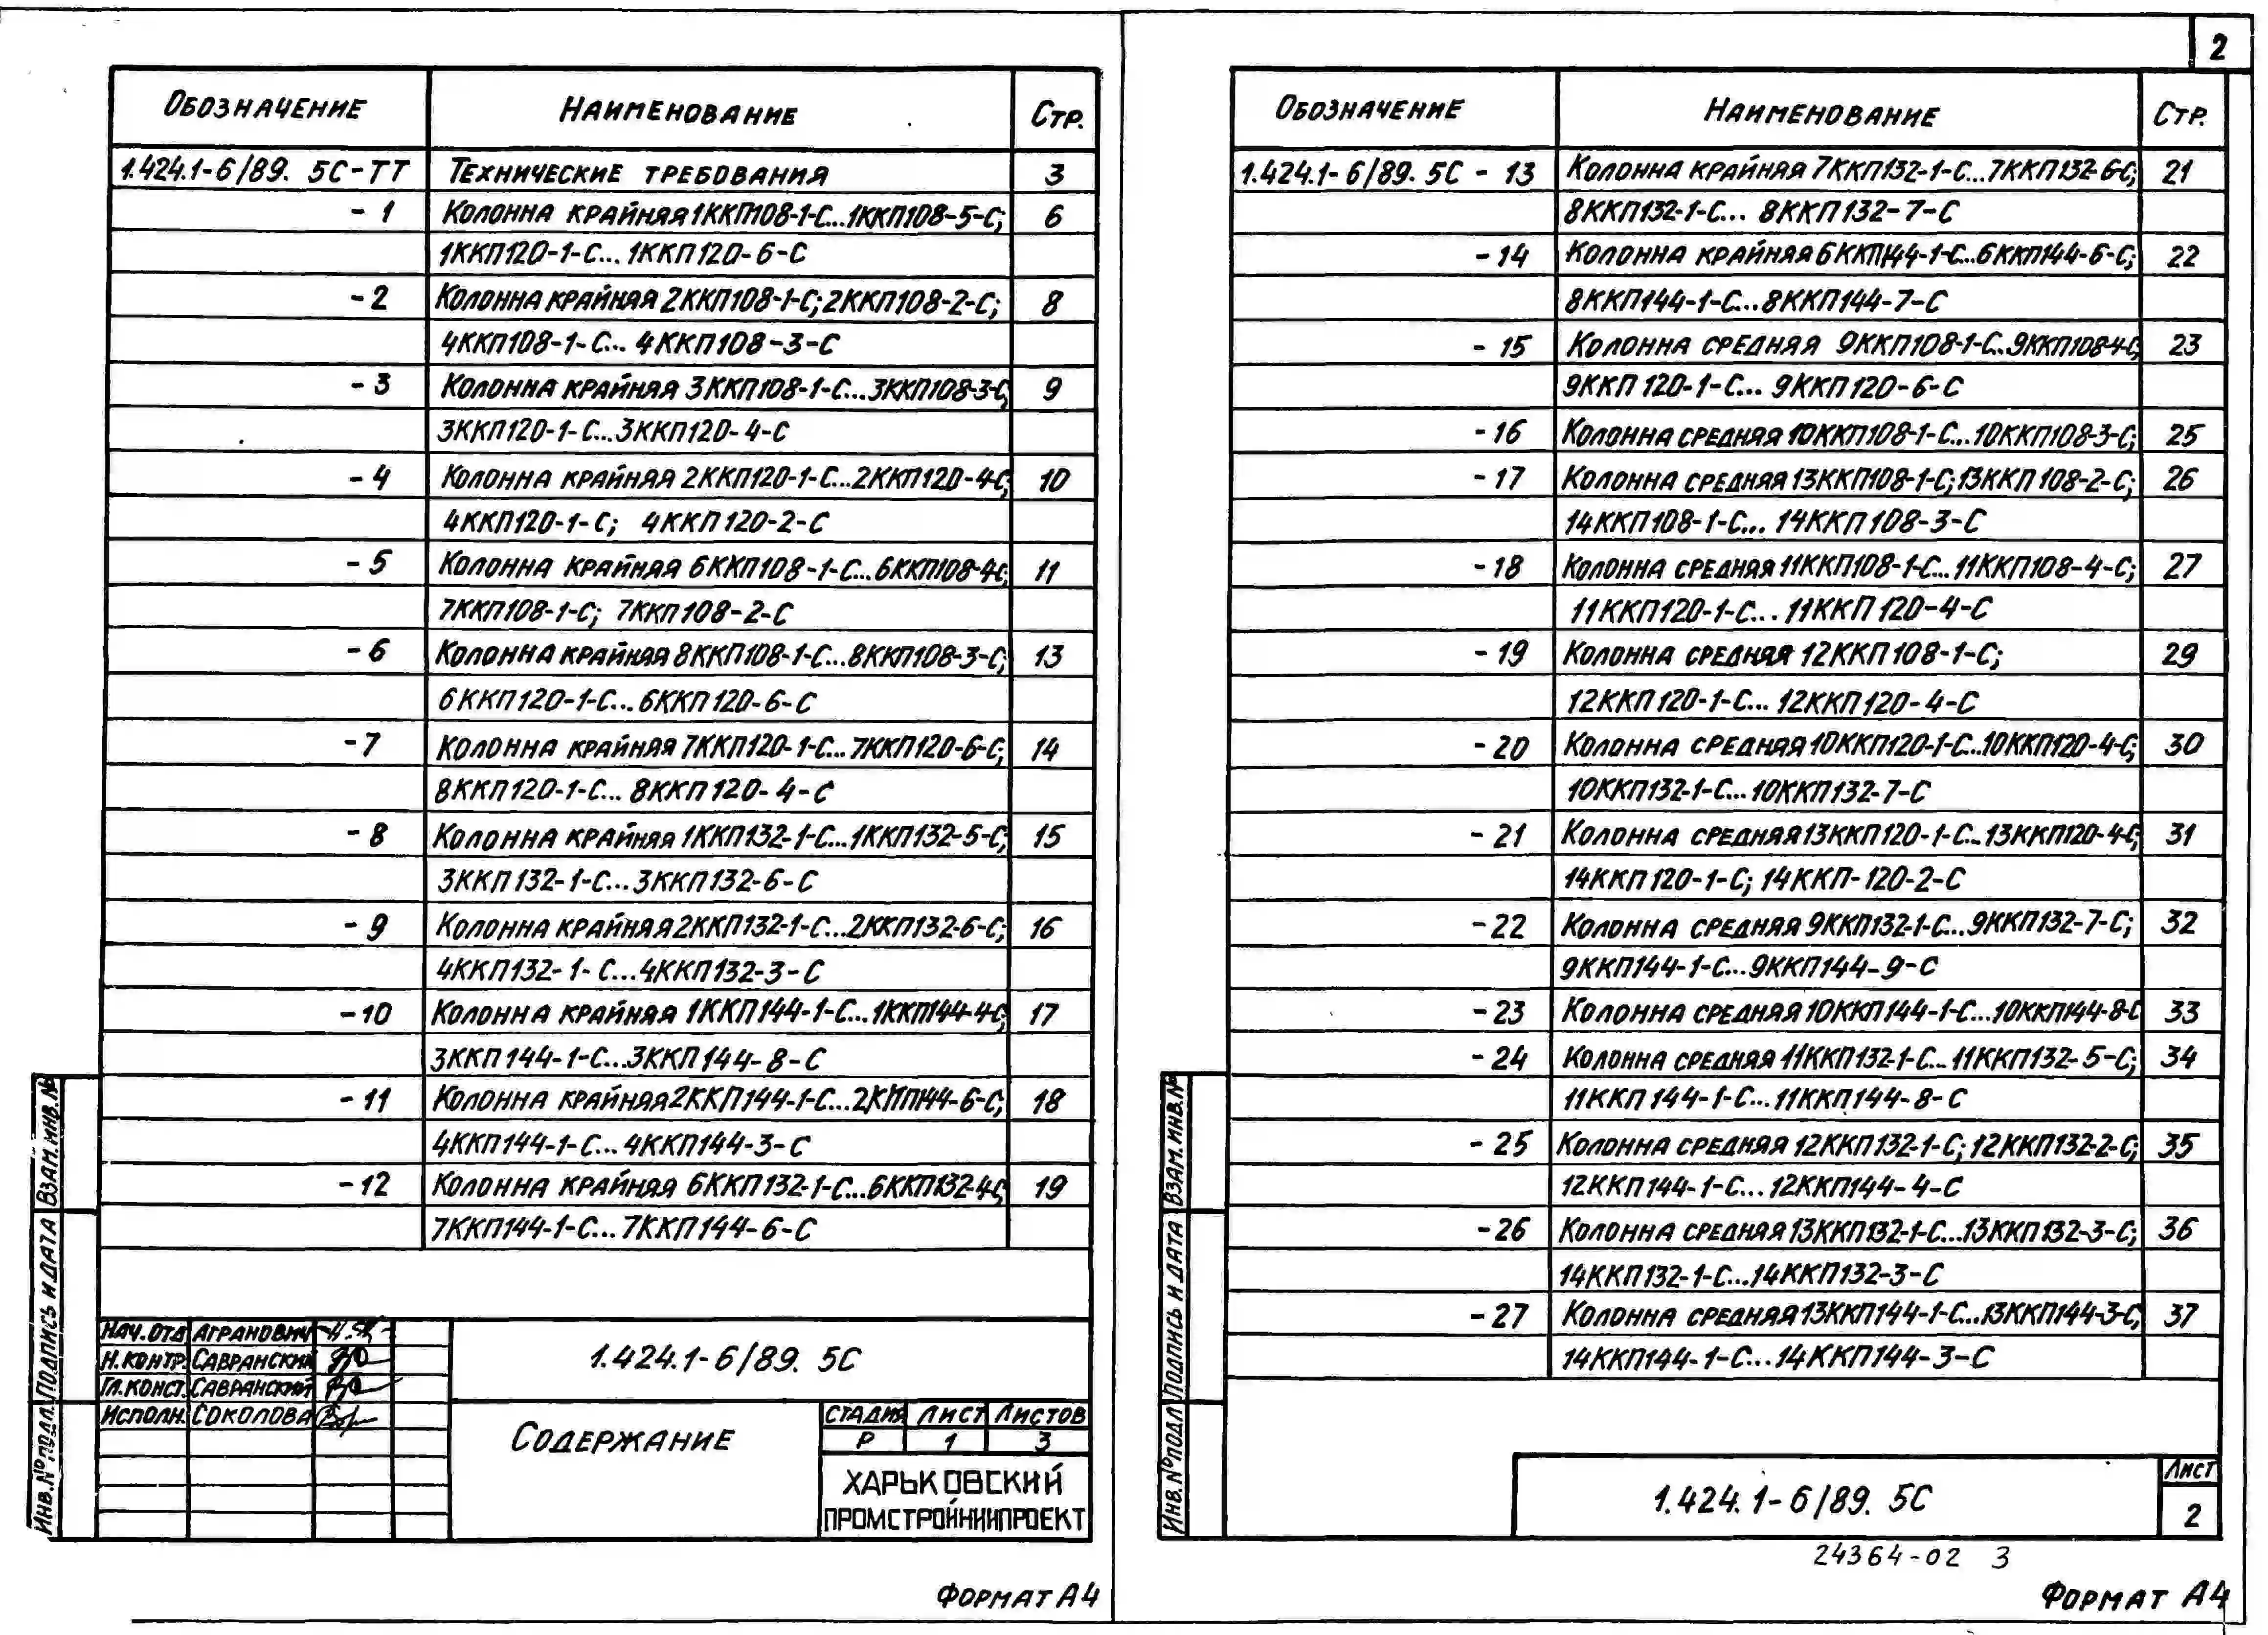 2
Обозначение Наименование Стр.
1.424.1-6/89. 5С-ТТ Технические требования 3
-1 Колонна крайняя 1ККП108-1-С...1ККП108-5-С; 6
1ККП120-1-С...1ККП120-6-С
-2 Колонна крайняя 2ККП108-1-С; 2ККП108-2-С; 8
4ККП108-1-С... 4ККП108-3-С
-3 Колонна крайняя 3ККП108-1-С...3ККП108-3-С; 9
3ККП120-1-С...3ККП120-4-С
-4 Колонна крайняя 2ККП120-1-С...2ККП120-4-С; 10
4ККП120-1-С; 4ККП120-2-С
-5 Колонна крайняя 6ККП108-1-С...6ККП108-4-С; 11
7ККП108-1-С; 7ККП108-2-С
-6 Колонна крайняя 8ККП108-1-С...8ККП108-3-С; 13
6ККП120-1-С...6ККП120-6-С
-7 Колонна крайняя 7ККП120-1-С...7ККП120-6-С; 14
8ККП120-1-С...8ККП120-4-С
-8 Колонна крайняя 1ККП132-1-С...1ККП132-5-С; 15
3ККП132-1-С...3ККП132-6-С
-9 Колонна крайняя 2ККП132-1-С...2ККП132-6-С; 16
4ККП132-1-С...4ККП132-3-С
-10 Колонна крайняя 1ККП144-1-С...1ККП144-4-С; 17
3ККП144-1-С...3ККП144-8-С
-11 Колонна крайняя 2ККП144-1-С...2ККП144-6-С; 18
4ККП144-1-С...4ККП144-3-С
-12 Колонна крайняя 6ККП132-1-С...6ККП132-4-С; 19
7ККП144-1-С...7ККП144-6-С
Нач.отд Агранович
Н.контр. Савранский
Гл.конст. Савранский
Исполн. Соколова
1.424.1-6/89. 5С
Содержание
Стадия Лист Листов
Р 1 3
ХАРЬКОВСКИЙ
ПРОМСТРОЙНИИПРОЕКТ
Инв.№ подл. Подпись и дата Взам.инв.№
Формат А4
Обозначение Наименование Стр.
1.424.1-6/89. 5С - 13 Колонна крайняя 7ККП132-1-С...7ККП132-6-С; 21
8ККП132-1-С... 8ККП132-7-С
-14 Колонна крайняя 6ККП144-1-С...6ККП144-6-С; 22
8ККП144-1-С...8ККП144-7-С
-15 Колонна средняя 9ККП108-1-С...9ККП108-4-С; 23
9ККП120-1-С... 9ККП120-6-С
-16 Колонна средняя 10ККП108-1-С...10ККП108-3-С; 25
-17 Колонна средняя 13ККП108-1-С; 13ККП108-2-С; 26
14ККП108-1-С... 14ККП108-3-С
-18 Колонна средняя 11ККП108-1-С...11ККП108-4-С; 27
11ККП120-1-С...11ККП120-4-С
-19 Колонна средняя 12ККП108-1-С; 29
12ККП120-1-С... 12ККП120-4-С
-20 Колонна средняя 10ККП120-1-С...10ККП120-4-С; 30
10ККП132-1-С...10ККП132-7-С
-21 Колонна средняя 13ККП120-1-С...13ККП120-4-С; 31
14ККП120-1-С; 14ККП-120-2-С
-22 Колонна средняя 9ККП132-1-С...9ККП132-7-С; 32
9ККП144-1-С...9ККП144-9-С
-23 Колонна средняя 10ККП144-1-С...10ККП144-8-С 33
-24 Колонна средняя 11ККП132-1-С...11ККП132-5-С; 34
11ККП144-1-С...11ККП144-8-С
-25 Колонна средняя 12ККП132-1-С; 12ККП132-2-С; 35
12ККП144-1-С...12ККП144-4-С
-26 Колонна средняя 13ККП132-1-С...13ККП132-3-С; 36
14ККП132-1-С...14ККП132-3-С
-27 Колонна средняя 13ККП144-1-С...13ККП144-3-С; 37
14ККП144-1-С...14ККП144-3-С
Инв.№ подл Подпись и дата Взам.инв.№
1.424.1-6/89. 5С
Лист
2
24364-02 3
Формат А4